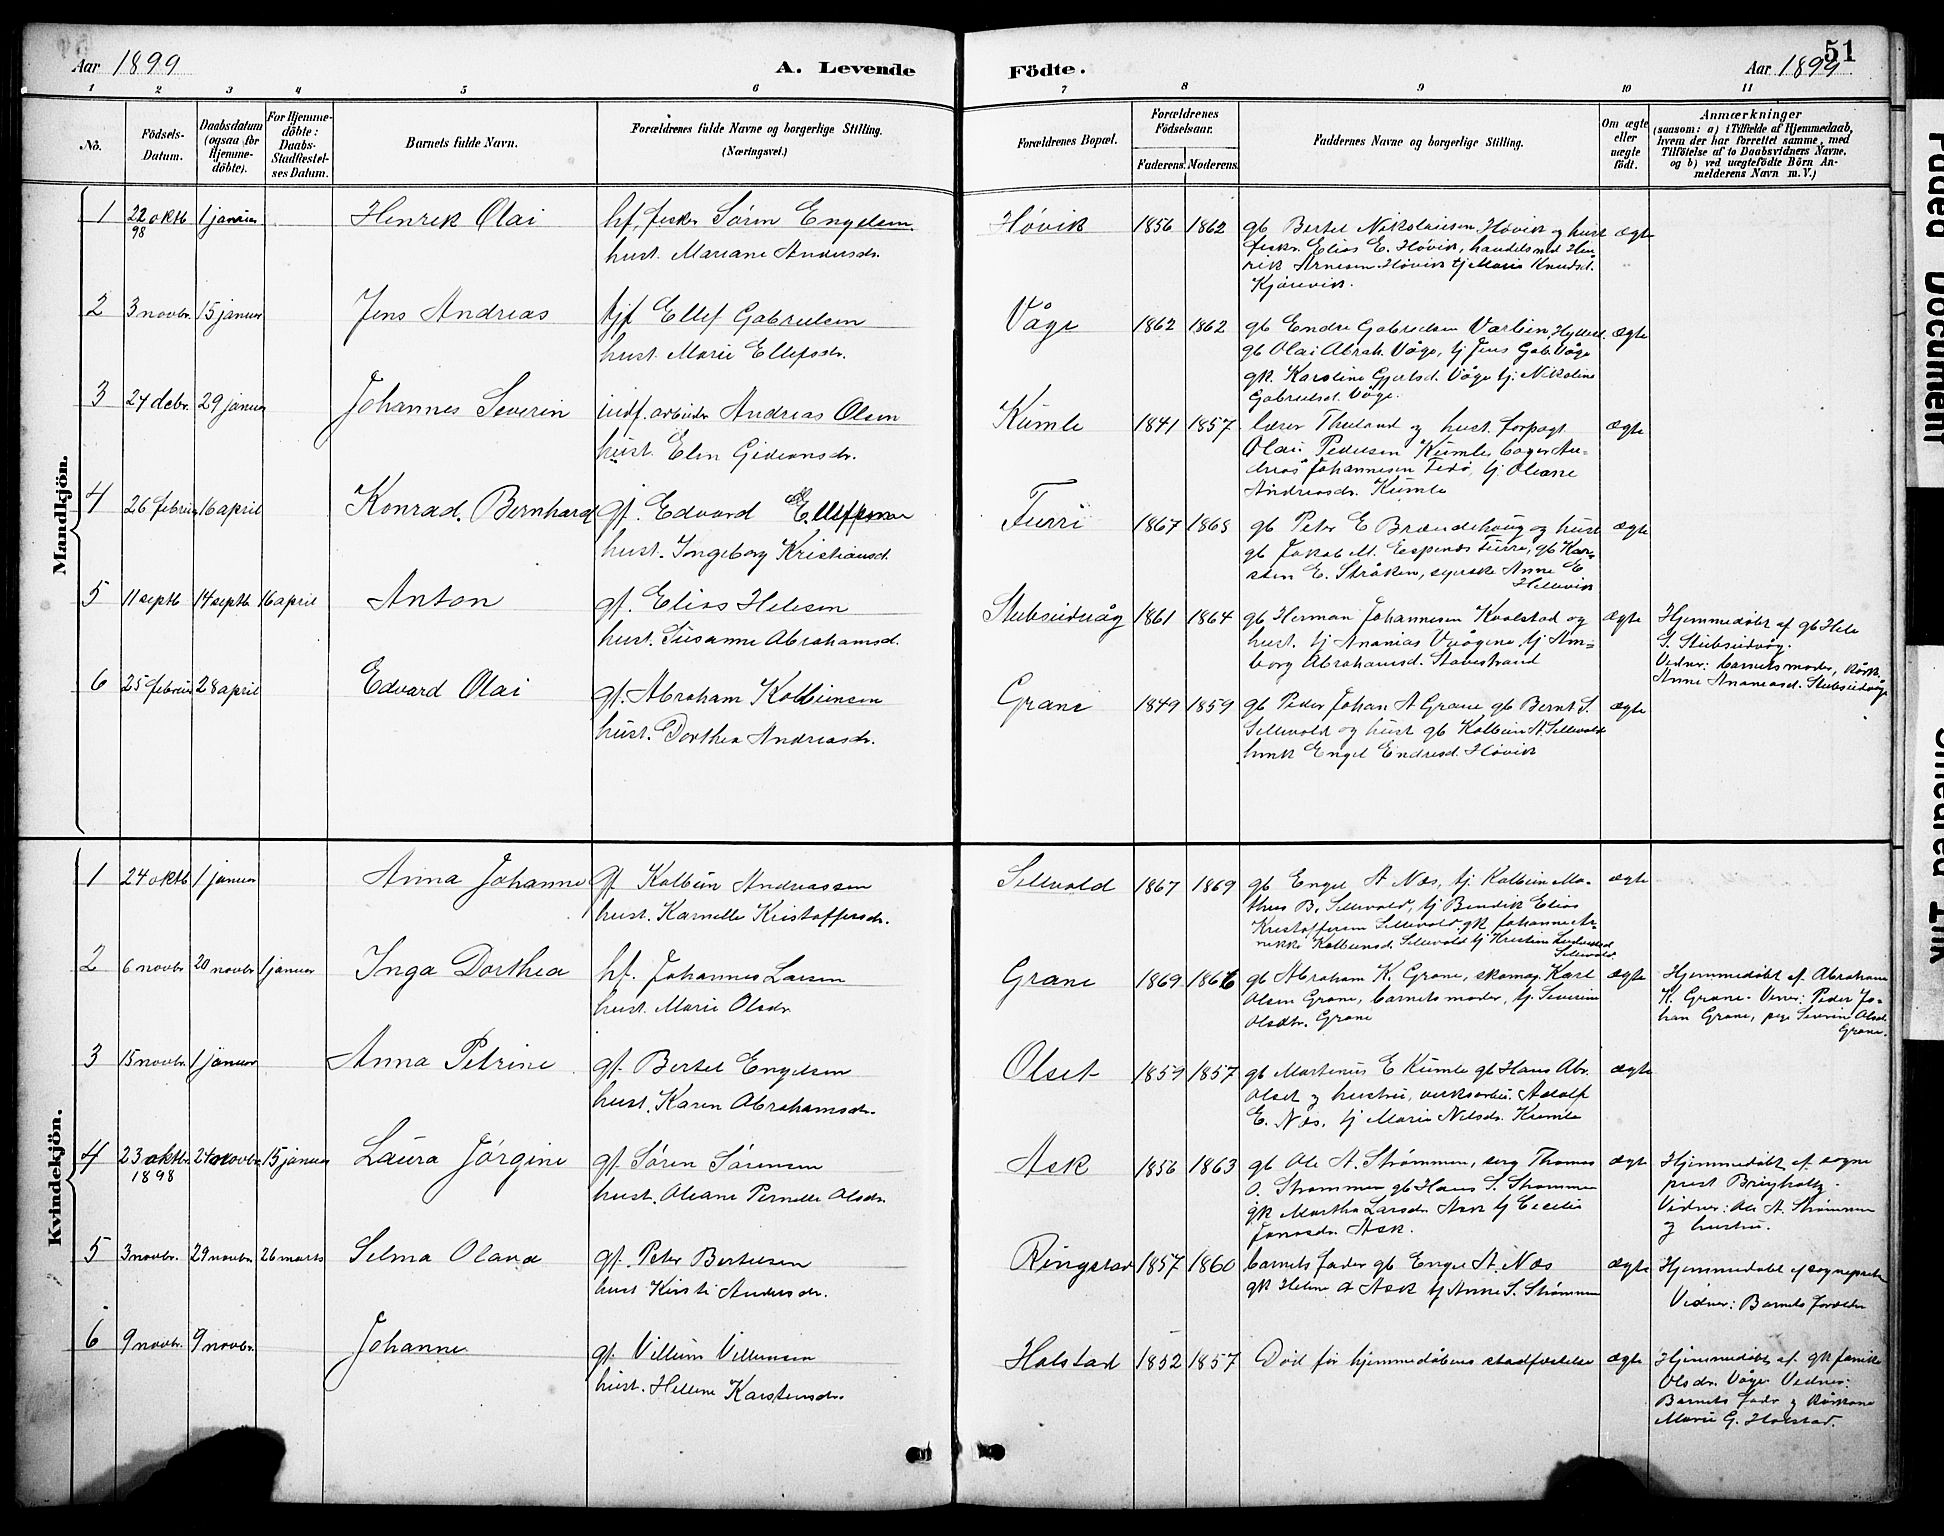 51
Aar 1899 A. Levende Födte. Aar 1899
1 2 3 4 5 6 7 8 9 10 11
No.
Födsels-
Datum.
Daabsdatum
(ogsaa for
Hjemme-
döbte).
For Hjemme-
döbte:
Daabs-
Stadfæstel-
ses Datum.
Barnets fulde Navn.
Forældrenes fulde Navne og borgerlige Stilling.
(Næringsvei.)
Forældrenes Bopæl.
Forældrenes
Födselsaar.
Faderens. Moderens.
Faddernes Navne og borgerlige Stilling.
Om ægte
eller
uægte
födt.
Anmærkninger
(saasom: a) i Tilfælde af Hjemmedaab,
hvem der har forrettet samme, med
Tilföielse af to Daabsvidners Navne,
og b) ved uægtefödte Börn An-
melderens Navn m. V.)
Mandkjön.
1 22 oktb 98 1 januar Henrik Olai
hf. fisker Sören Engelsen
hust. Mariane Andersdr.
Hövik 1856 1862
gb Bertel Nikolaisen Hövik og hust
fisker Elias E. Hövik, handelsmd Hen-
rik Arnesen Hövik tj Marie Knudsd.
Kjörevik.
ægte
2 3 novbr. 15 januar Jens Andreas
tjf Ellef Gabrielsen
hust. Marie Ellefsdr.
Våge 1862 1862
gb Endre Gabrielsen
gb Olai Abrah. Våge, tj Jens Gab. Våge
gk. Karoline Gjertsd. Våge tj. Nikoline
Gabrielsd. Våge.
ægte
3 24 debr. 29 januar Johannes Severin
indf. arbeider Andreas Olsen
hust. Elen Gideonsdr.
Kumle 1841 1857
lærer Thuland og hust. forpagt
Olai Pedersen Kumle, bager An-
dreas Johannesen Fedö, tj Oleane
Andreasdr. Kumle
ægte
4 26 februar 16 april Konrad Bernhard
gf. Edvard Ellefsen
hust. Ingeborg Kristiansd.
Furri 1867 1868
gb Peter E Brændehaug og hust
gb Jakob M. Espenes Furre, gb Kar-
sten E. Stråken, syerske Anne E
Hellevik
ægte
5 11 septb 14 septb 16 april Anton
gf. Elias Helesen
hust. Susanne Abrahamsd.
Stubseidvåg 1861 1864
gb Herman Johannesen Kvalstad og
hust. tj Ananias Vågene tj Am-
borg Abrahamsd. Stavestrand
ægte
Hjemmedöbt af gb Hele
S. Stubseidvåg.
Vidner: barnets moder,
Anne Ananiasd. Stubseidvåge
6 25 februar 28 april Edvard Olai
gf. Abraham Kolbeinsen
hust. Dorthea Andreasdr.
Grane 1849 1859
gb Peder Johan A Grane gb Bernt S.
Sellevold og hust gb Kolbein A. Sellevold
hmk Engel Endresd. Hövik
ægte
Kvindekjön.
1 24 oktb 1 januar Anna Johanne
gf Kolbein Andreassen
hust. Karnelle Kristoffersdr.
Sellevold 1867 1869
gb Engel A Næs, tj. Kolbein Ma-
thias B. Sellevold, tj Bendik Elias
Kristoffersen Sellevold. gk Johanne An-
nikke Kolbeinsd. Sellevold tj Kristine
Sellevold
ægte
2 6 novbr 20 novbr 1 januar Inga Dorthea
hf. Johannes Larsen
hust. Marie Olsdr.
Grane 1869 1866
gb Abraham K. Grane, skomag. Karl
Olsen Grane, barnets moder, tj. Severine
Olsdtr. Grane
ægte
Hjemmedöbt af. Abraham
K. Grane. Vidner: Peder Jo-
han Grane, pige Severine Olsd.
Grane.
3 15 novbr. 1 januar Anna Petrine
gf. Bertel Engelsen
hust. Karen Abrahamsdr.
Olset 1859 1857
gb Martinus E Kumle gb Hans Abr.
Olset og hustru, verksarbei. Adolf
E. Næs, tj Marie Nilsdr. Kumle
ægte
4 23 oktbr. 1898 24 novbr. 15 januar Laura Jörgine
gf. Sören Sörensen
hust. Oleane Pernelle Olsdr.
Ask 1856 1863
gb Ole A. Strömmen, serg Thomas
O. Strömmen gb Hans S. Strömmen
gk Martha Larsdr. Ask tj Cecilie
Jonasdr. Ask.
ægte
Hjemmedöbt af. sogne
prest
Vidner: Ole A. Strömmen
og hustru.
5 3 novbr. 29 novbr. 26 marts Selma Olava
gf. Peter Bertelsen
hust Kirsti Andersdr.
Ringstad 1857 1860
barnets fader gb Engel A. Næs
gk Helene A Ask tj Anne S. Strömmen
ægte
Hjemmedöbt af sogneprest
Vidner: Barnets forældre
6 9 novbr. 9 novbr. Johanne
gf. Villum Villumsen
hust. Hellene Karstensdr.
Holstad 1852 1857
Död för hjemmedåbens stadfæstelse
ægte
Hjemmedöbt af. gk Jannike
Olsdr. Våge Vidner:
Barnets fader og Körkone
Marie G. Holstad.
Faded Document
Smeared Ink